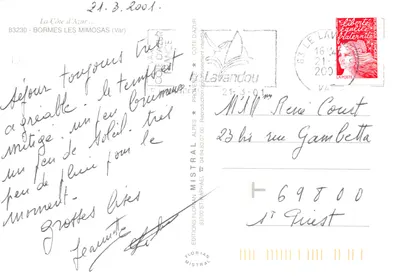 21.3.2001.
La Côte d'Azur...
83230 - BORMES LES MIMOSAS (Var)
Séjour toujours très
agréable. le temps est
mitigé. un peu brumeux
un peu de soleil. très
peu de pluie pour le
moment.
grosses bises
Jeannette
le Lavandou
21-3-01
83 LE LAVANDOU
16
21-3
200
VAR
liberté
égalité
fraternité
René Court
23 bis rue Gambetta
69800
St Priest
MISTRAL
EDITIONS
MISTRAL